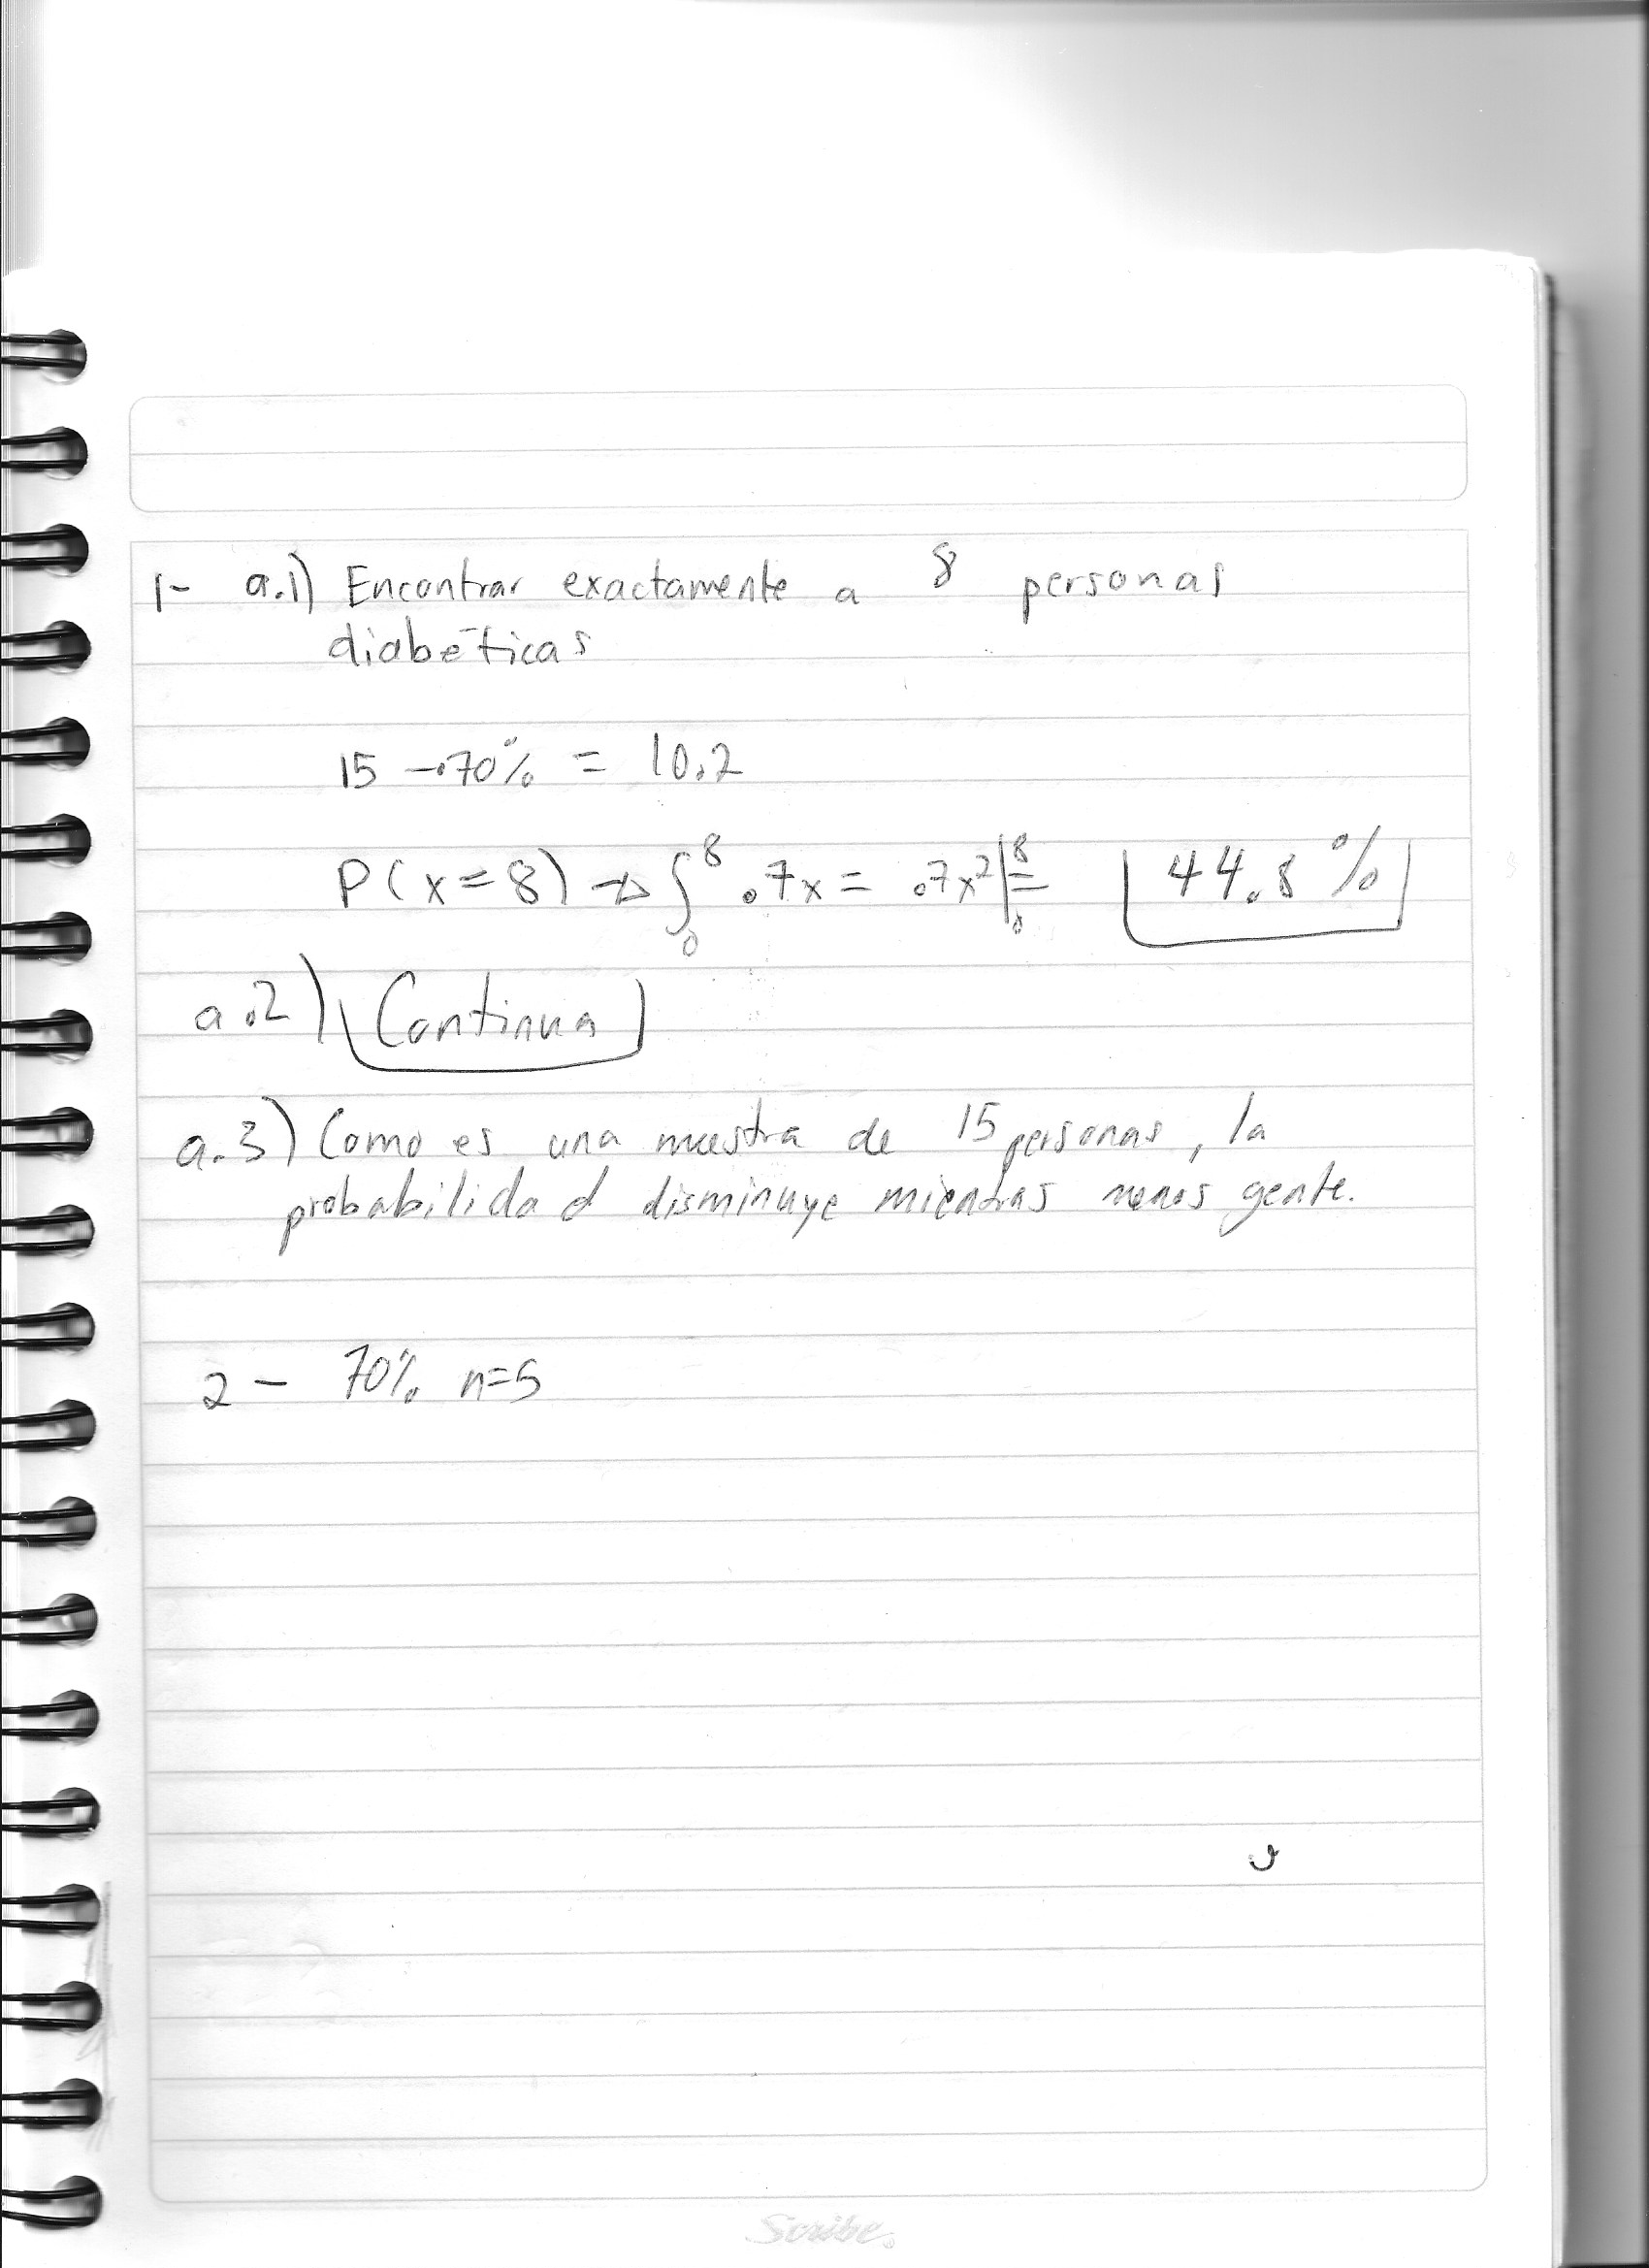 1- a.1) Encontrar exactamente a 8 personas
diabéticas
15 → 70% = 10.2
P(x=8) → ∫₀⁸ .7x = .7x²|₀⁸ = 44.8%
a.2) Continua
a.3) Como es una muestra de 15 personas, la
probabilidad disminuye mientras menos gente.
2 - 70% n=5
Scribe